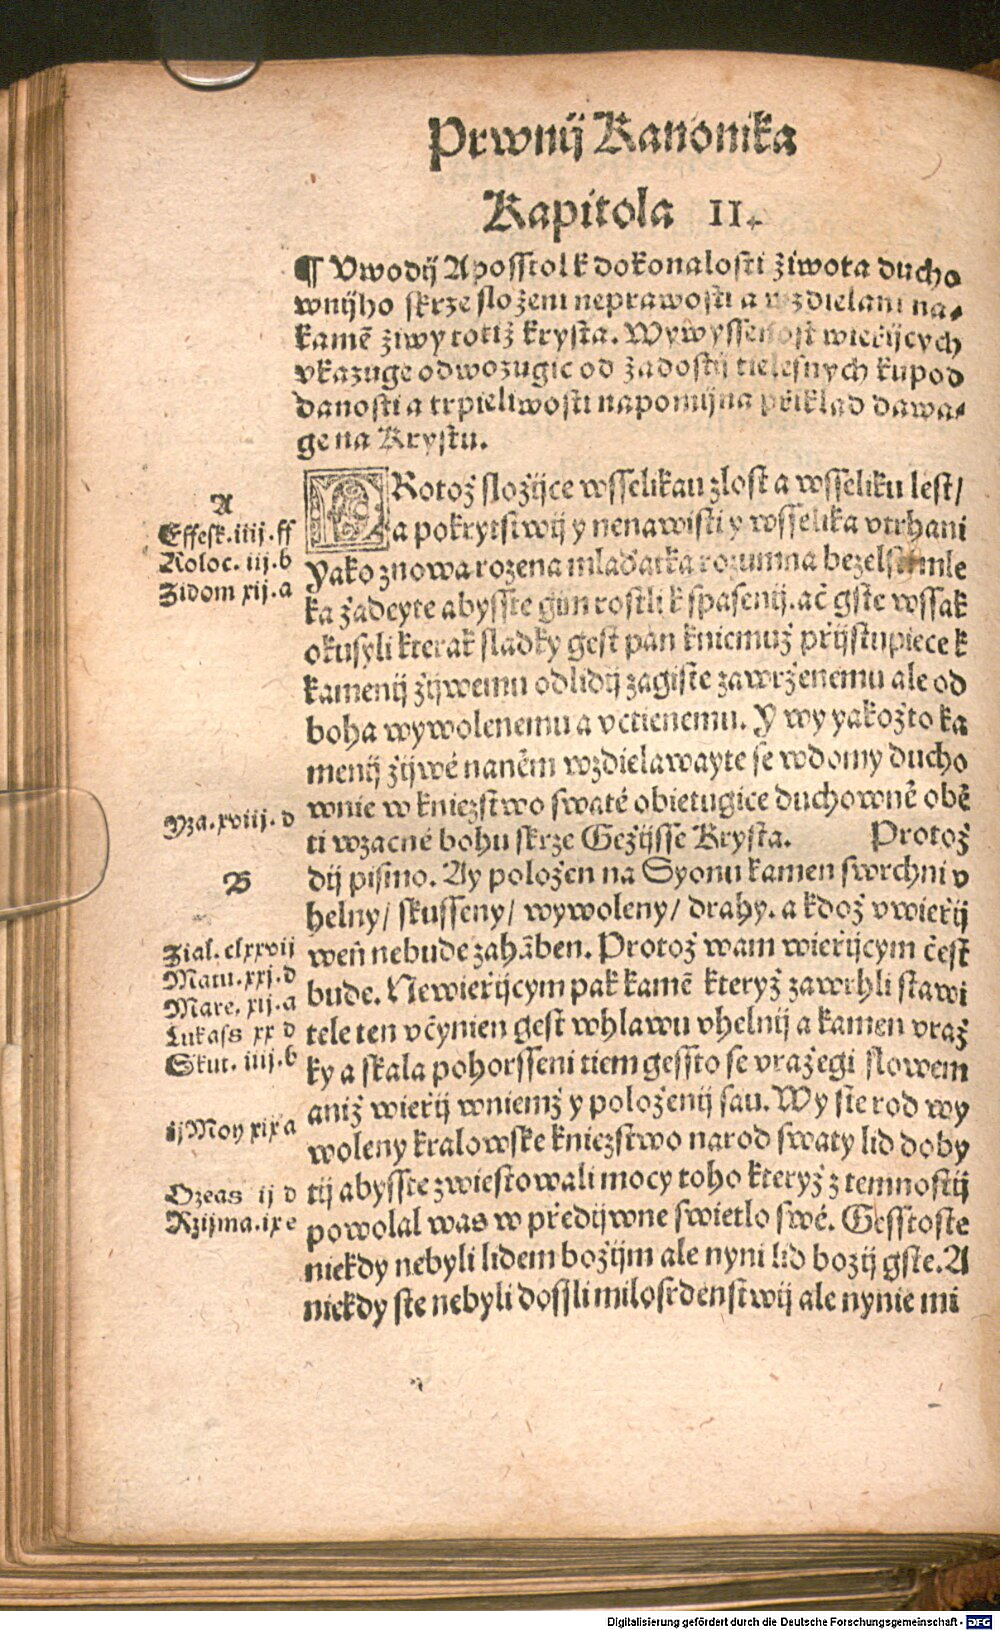 Prwnij Kanonika
Kapitola II.
¶ Vwodij Aposstol k dokonalosti żiwota ducho
wnijho skrze slożeni neprawosti a wzdielani na-
kamē żiwy totiż krysta. Wywyssenost wieřijcych
vkazuge odwozugic od żadostij tielesnych ku pod
danosti a trpieliwosti napomijna přiklad dawa-
ge na Krystu.
PRotoż slożijce wsselikau zlost a wsseliku lest/
a pokrytstwij y nenawisti y wsselika vtrhani
Yako znowa rozena mladatka rozumna bezelsti mle
ka żadeyte abysste gim rostli k spasenij. ač gste wssak
okusyli kterak sladky gest pan kniemuż přijstupiece k
kamenij żijwemu odlidij zagiste zawrżenemu ale od
boha wywolenemu a vctienemu. Y wy yakożto ka
menij żijwé naněm wzdielawayte se wdomy ducho
wnie w kniezstwo swaté obietugice duchowně obě
ti wzacné bohu skrze Geżijsse Krysta. Protoż
dij pismo. Ay położen na Syonu kamen swrchni v
helny/ skusseny/ wywoleny/ drahy. a kdoż vwieřij
weň nebude zahāben. Protoż wam wieřijcym čest
bude. Newieřijcym pak kamē kteryż zawrhli stawi
tele ten včynien gest whlawu vhelnij a kamen vraż
ky a skala pohorsseni tiem gessto se vrażegi slowem
aniż wieřij wniemż y położenij sau. Wy ste rod wy
woleny kralowske kniezstwo narod swaty lid doby
tij abysste zwiestowali mocy toho kteryż z temnostij
powolal was w předijwne swietlo swé. Gesstoste
niekdy nebyli lidem bożijm ale nyni lid bozij gste. A
niekdy ste nebyli dossli milosrdenstwij ale nynie mi
A
Effesk. iiij. ff
Koloc. iij. b
Zidom xij. a
Yza. xviij. d
B
Zial. clxxvij
Matu. xxj. d
Marc. xij. a
Lukass xx d
Skut. iiij. b
ij Moy xix a
Ozeas ij d
Rzijma. ix e
Digitalisierung gefördert durch die Deutsche Forschungsgemeinschaft - DFG